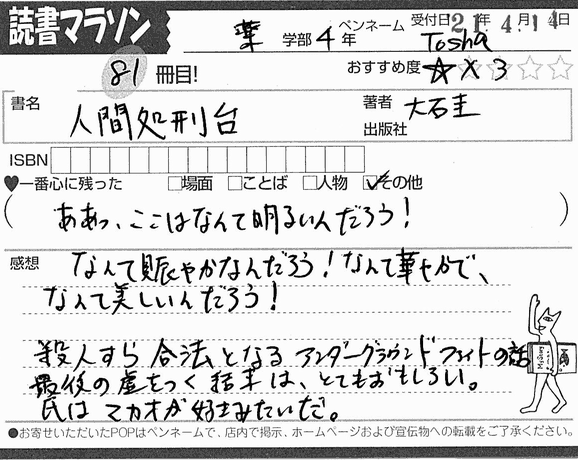 読書マラソン
薬 学部 4 年
ペンネーム Tosha
受付日 21年 4月14日
81 冊目!
おすすめ度 ★×3☆☆
書名 人間処刑台
著者 大石圭
出版社
ISBN
♥一番心に残った □場面 □ことば □人物 ☑その他
(ああっ、ここはなんて明るいんだろう!)
感想 なんて賑やかなんだろう!なんて華やかで、
なんて美しいんだろう!
殺人すら合法となるアンダーグラウンドファイトの話
最後の虚をつく結末は、とてもおもしろい。
氏はマカオが好きみたいだ。
●お寄せいただいたPOPはペンネームで、店内で掲示、ホームページおよび宣伝物への転載をご了承ください。